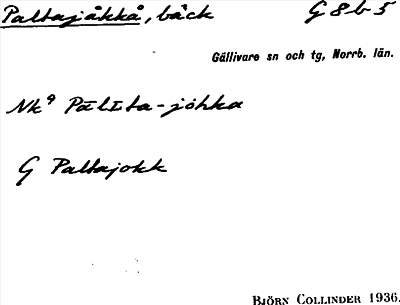 Paltajåkkå, bäck G 8 b 5
Gällivare sn och tg, Norrb. län.
Nk⁹ Pālɪta-jóhka
G Paltajokk
BJÖRN COLLINDER 1936.